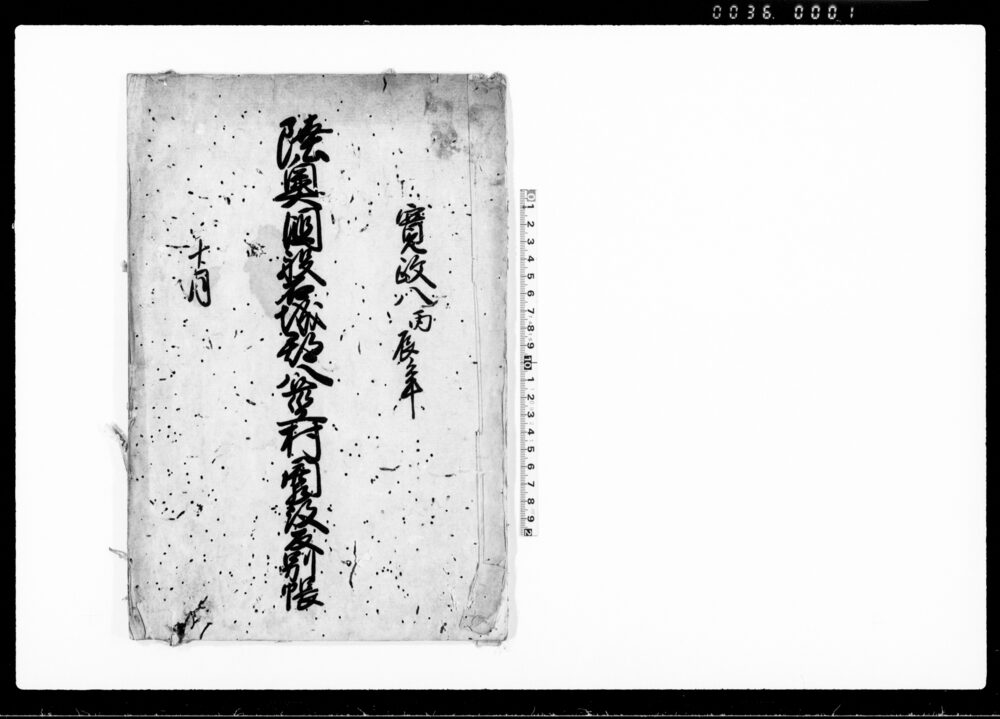 0036 0001
寛政八丙辰年
陸奥國磐城郡八莖村反別帳
十月
0 1 2 3 4 5 6 7 8 9 10 1 2 3 4 5 6 7 8 9